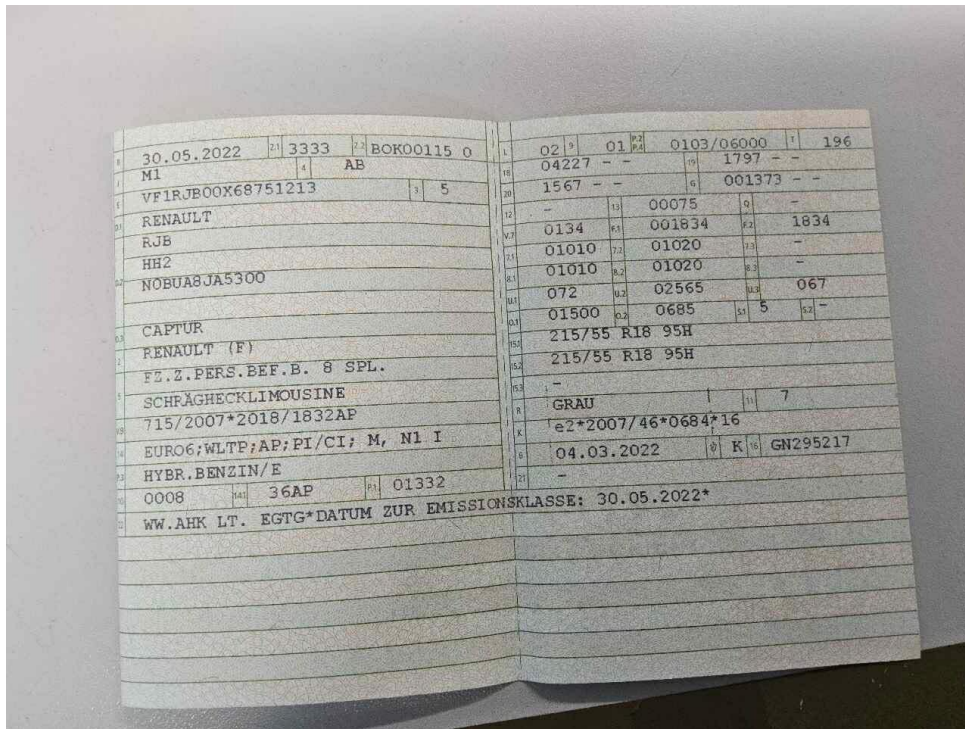 B 30.05.2022 2.1 3333 2.2 BOK00115 0
J M1 4 AB
E VF1RJB00X68751213 3 5
D.1 RENAULT
RJB
HH2
D.2 N0BUA8JA5300
D.3 CAPTUR
2 RENAULT (F)
FZ.Z.PERS.BEF.B. 8 SPL.
5 SCHRÄGHECKLIMOUSINE
V.9 715/2007*2018/1832AP
14 EURO6;WLTP;AP;PI/CI; M, N1 I
P.3 HYBR.BENZIN/E
10 0008 14.1 36AP P.1 01332
22 WW.AHK LT. EGTG*DATUM ZUR EMISSIONSKLASSE: 30.05.2022*
L 02 9 01 P.2 P.4 0103/06000 T 196
18 04227 - - 19 1797 - -
20 1567 - - G 001373 - -
12 - 13 00075 Q -
V.7 0134 F.1 001834 F.2 1834
7.1 01010 7.2 01020 7.3 -
8.1 01010 8.2 01020 8.3 -
U.1 072 U.2 02565 U.3 067
O.1 01500 O.2 0685 S.1 5 S.2 -
15.1 215/55 R18 95H
15.2 215/55 R18 95H
15.3 -
R GRAU 11 7
K e2*2007/46*0684*16
6 04.03.2022 17 K 16 GN295217
21 -